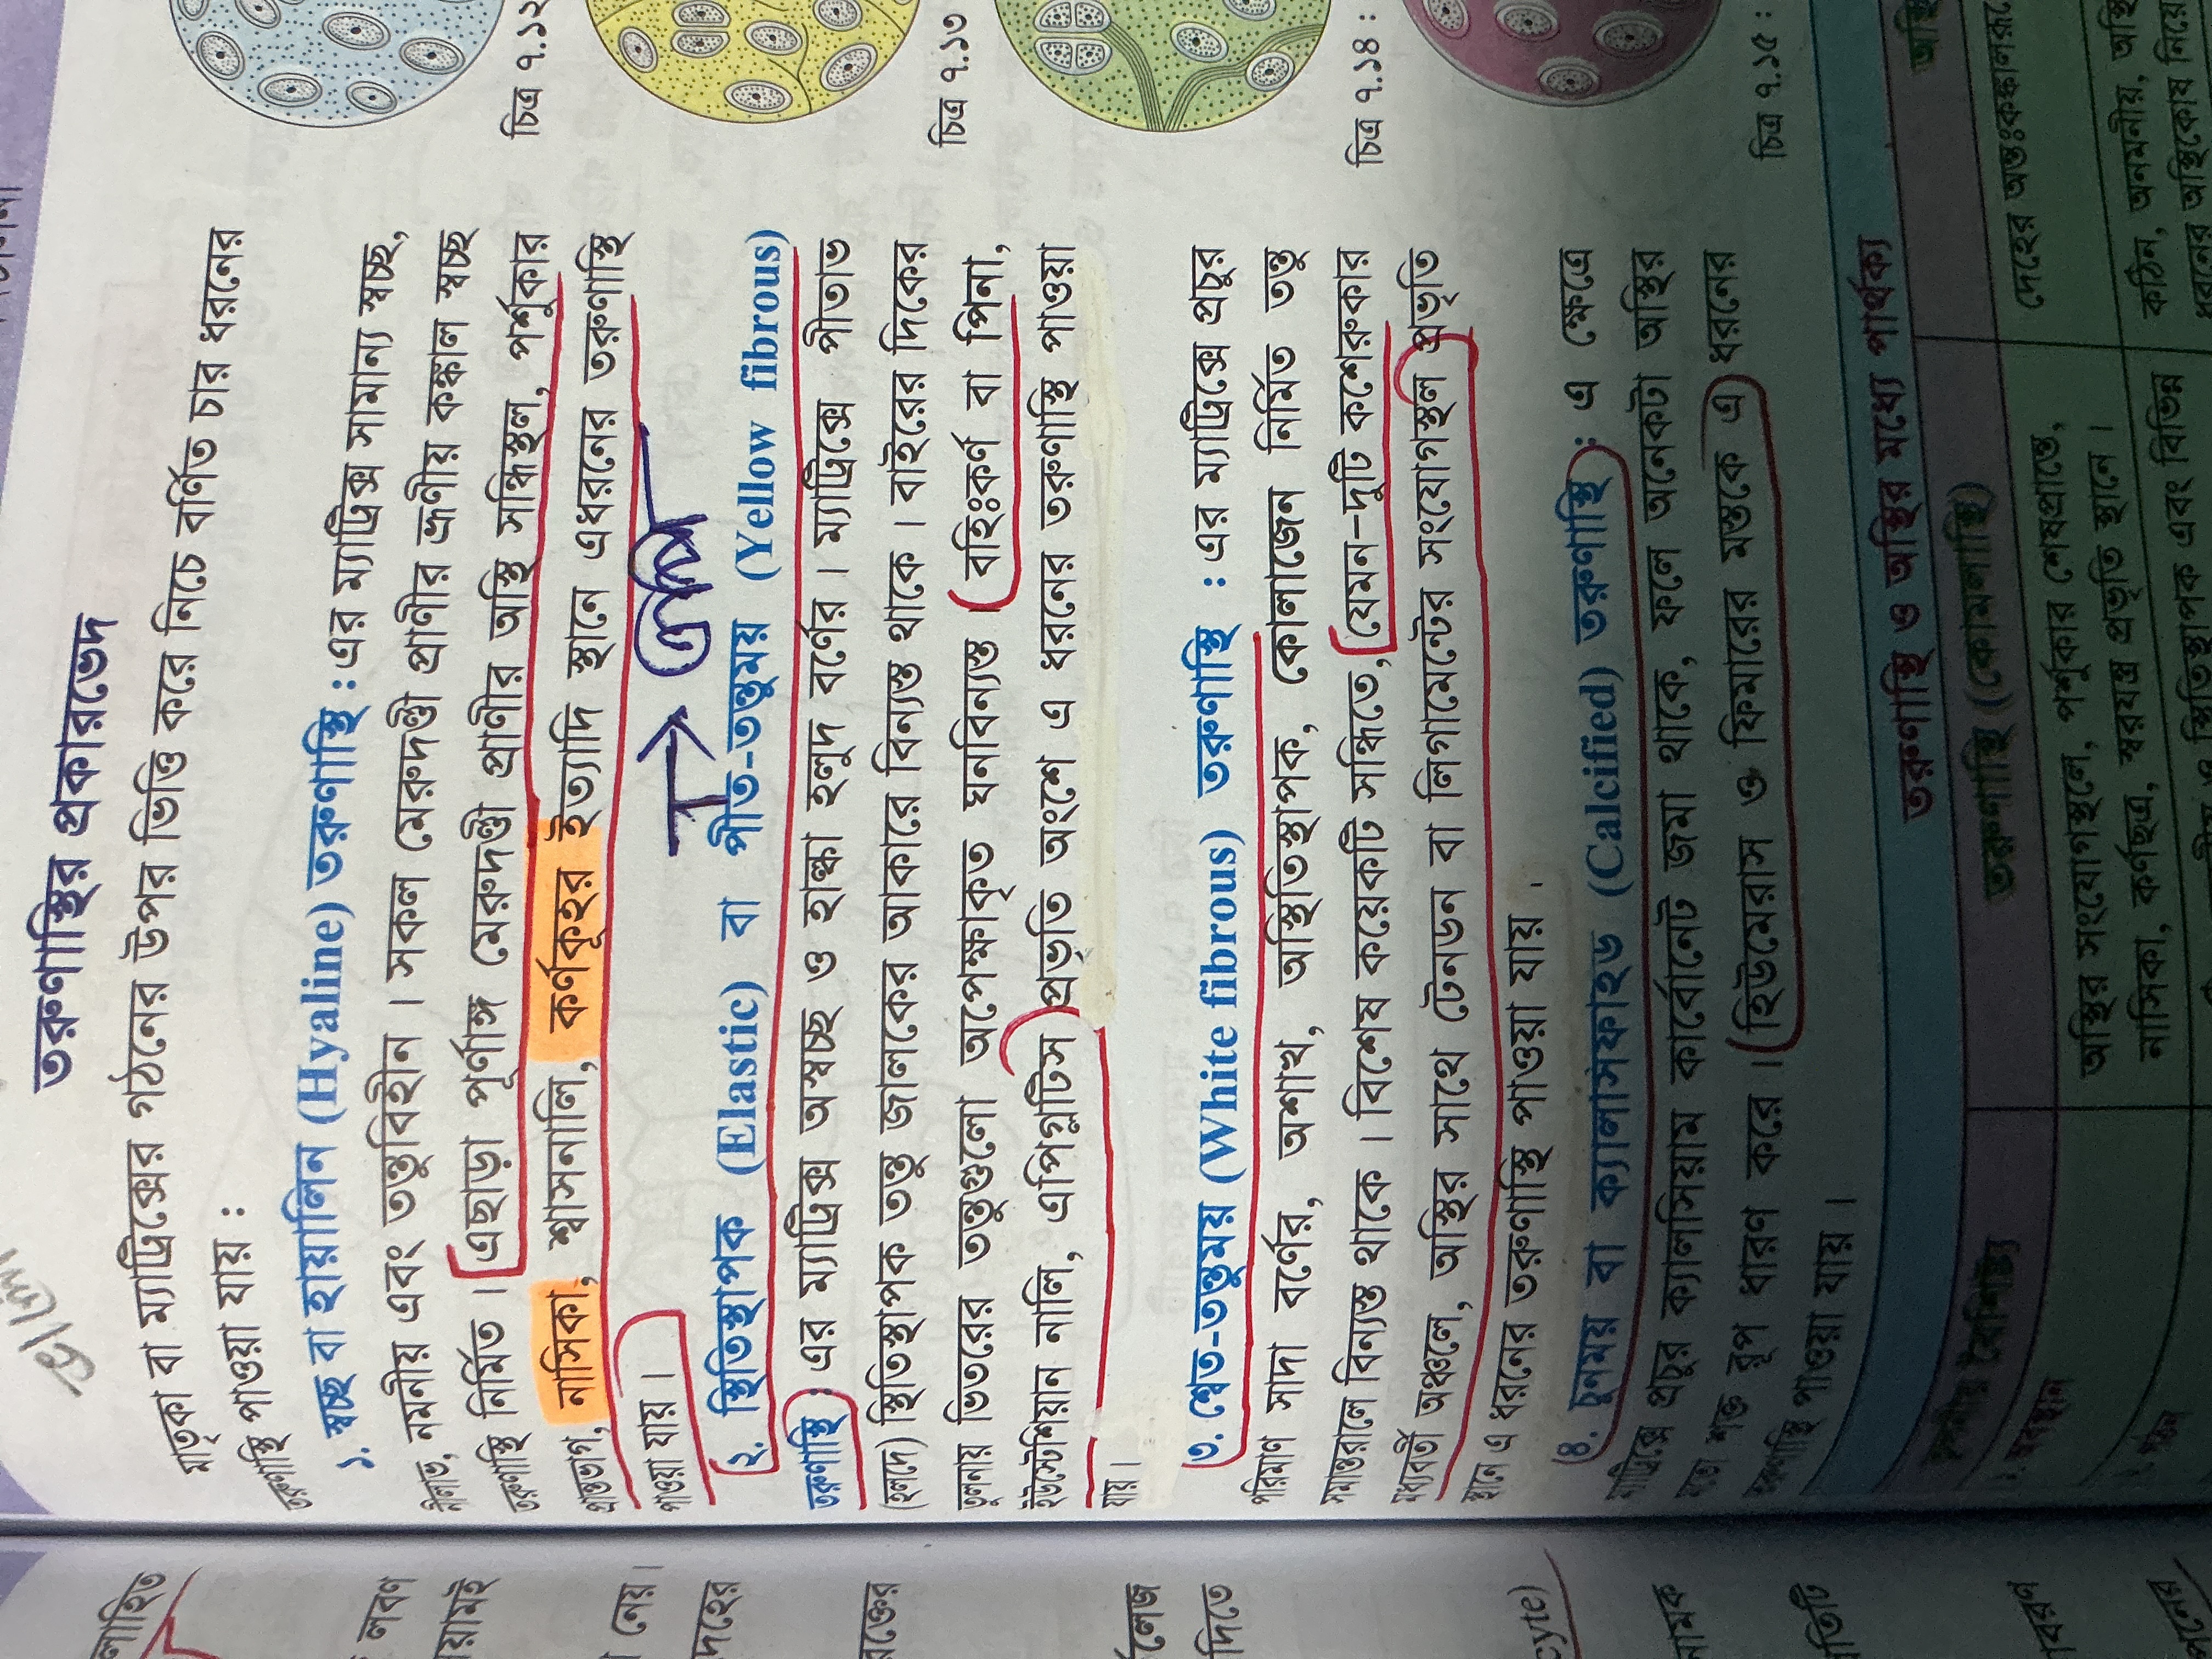 তরুণাস্থির প্রকারভেদ
মাতৃকা বা ম্যাট্রিক্সের গঠনের উপর ভিত্তি করে নিচে বর্ণিত চার ধরনের
তরুণাস্থি পাওয়া যায় :
১. স্বচ্ছ বা হায়ালিন (Hyaline) তরুণাস্থি : এর ম্যাট্রিক্স সামান্য স্বচ্ছ,
নীলাভ, নমনীয় এবং তন্তুবিহীন। সকল মেরুদণ্ডী প্রাণীর ভ্রূণীয় কঙ্কাল স্বচ্ছ
তরুণাস্থি নির্মিত। এছাড়া পূর্ণাঙ্গ মেরুদণ্ডী প্রাণীর অস্থি সন্ধিস্থল, পর্শুকার
প্রান্তভাগ, নাসিকা, শ্বাসনালি, কর্ণকূহর ইত্যাদি স্থানে এধরনের তরুণাস্থি
পাওয়া যায়।
২. স্থিতিস্থাপক (Elastic) বা পীত-তন্তুময় (Yellow fibrous)
তরুণাস্থি : এর ম্যাট্রিক্স অস্বচ্ছ ও হাল্কা হলুদ বর্ণের। ম্যাট্রিক্সে পীতাভ
(হলদে) স্থিতিস্থাপক তন্তু জালকের আকারে বিন্যস্ত থাকে। বাইরের দিকের
তুলনায় ভিতরের তন্তুগুলো অপেক্ষাকৃত ঘনবিন্যস্ত। বহিঃকর্ণ বা পিনা,
ইউস্টেশিয়ান নালি, এপিগ্লটিস প্রভৃতি অংশে এ ধরনের তরুণাস্থি পাওয়া
যায়।
৩. শ্বেত-তন্তুময় (White fibrous) তরুণাস্থি : এর ম্যাট্রিক্সে প্রচুর
পরিমাণ সাদা বর্ণের, অশাখ, অস্থিতিস্থাপক, কোলাজেন নির্মিত তন্তু
সমান্তরালে বিন্যস্ত থাকে। বিশেষ কয়েকটি সন্ধিতে, যেমন-দুটি কশেরুকার
মধ্যবর্তী অঞ্চলে, অস্থির সাথে টেনডন বা লিগামেন্টের সংযোগস্থল প্রভৃতি
স্থানে এ ধরনের তরুণাস্থি পাওয়া যায়।
৪. চুনময় বা ক্যালসিফাইড (Calcified) তরুণাস্থি : এ ক্ষেত্রে
ম্যাট্রিক্সে প্রচুর ক্যালসিয়াম কার্বোনেট জমা থাকে, ফলে অনেকটা অস্থির
মতো শক্ত রূপ ধারণ করে। হিউমেরাস ও ফিমারের মস্তকে এ ধরনের
তরুণাস্থি পাওয়া যায়।
চিত্র ৭.১২
চিত্র ৭.১৩
চিত্র ৭.১৪ :
চিত্র ৭.১৫ :
তরুণাস্থি ও অস্থির মধ্যে পার্থক্য
তরুণাস্থি (কোমলাস্থি)
অস্থি
অস্থির সংযোগস্থলে, পর্শুকার শেষপ্রান্তে,
নাসিকা, কর্ণছত্র, স্বরযন্ত্র প্রভৃতি স্থানে।
দেহের অন্তঃকঙ্কালরূপে
কঠিন, অনমনীয়, অস্থি
লবণ
নেয়।
দিতে
cyte)